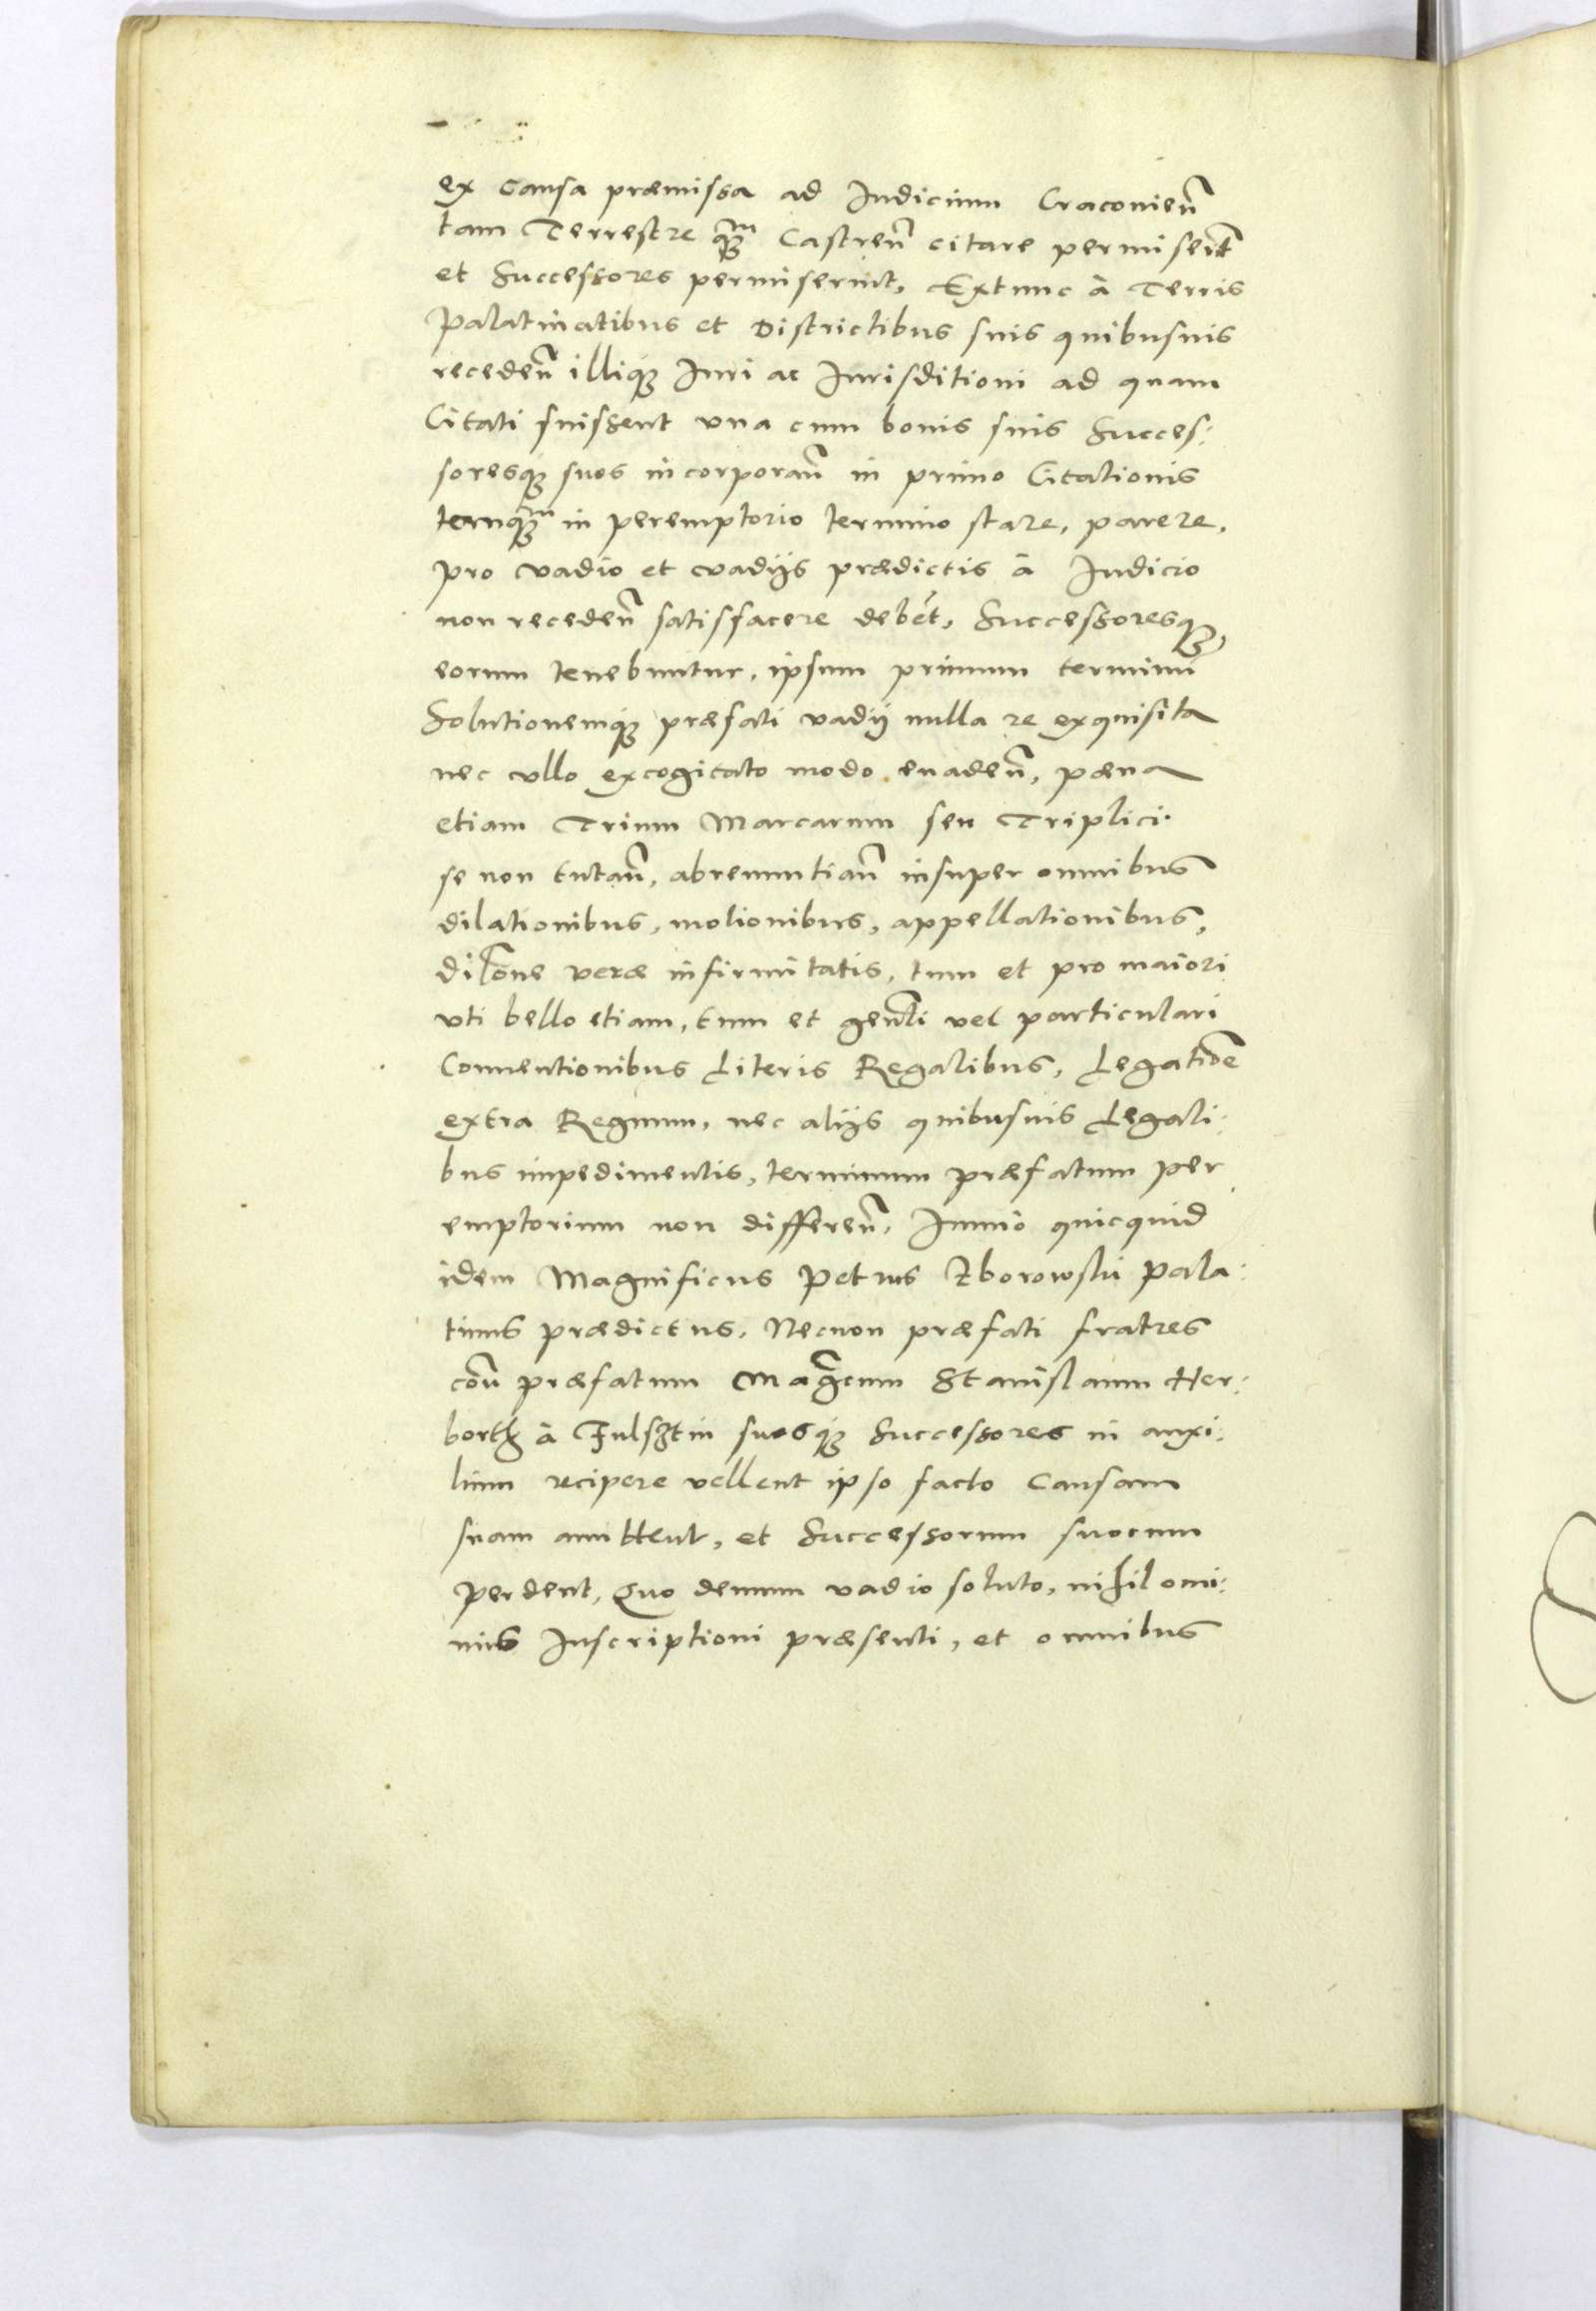 ex causa præmissa ad Iudicium Craconień
tam Terrestre q̃ȝ Castreń citare permiserīt
et Successores permiserint, Extunc à Terris
Palatinatibus et Districtibus suis quibusuis
recedeń illiq́ȝ Iuri ac Iurisditioni ad quam
Citati fuissent vna cum bonis suis Succes:
soresq́ȝ suos incorporań in primo Citationis
tanq̃ȝ in peremptorio termino stare, parere,
pro vadio et vadijs prædictis à Iudicio
non recedeń satisfacere debēt, Successoresqȝ
eorum tenebuntur, ipsum primum terminū
Solutionemq́ȝ præfati vadij nulla re exquisita
nec vllo excogitato modo euadeń, pæna
etiam Trium Marcarum seu Triplici
se non tutań, abrenuntiań insuper omnibus
dilationibus, motionibus, appellationibus,
dilōne veræ infirmitatis, tum et pro maiori
vti bello etiam, tum et geñli vel particulari
Conuentionibus Literis Regalibus, Legatiōe
extra Regnum, nec alijs quibusuis Legali:
bus impedimentis, terminum præfatum per
emptorium non differeń, Immò quicquid
idem Magnificus Petrus Zborowski Pala:
tinus prædictus, Necnon præfati fratres
coñ præfatum Magcum Stanislaum Her:
borth à Fulsztin suosq́ȝ Successores in auxi:
lium recipere vellent ipso facto Causam
suam amittent, et Successorum suorum
perdent, Quo demum vadio soluto, nihilomi:
nus Inscriptioni præsenti, et omnibus